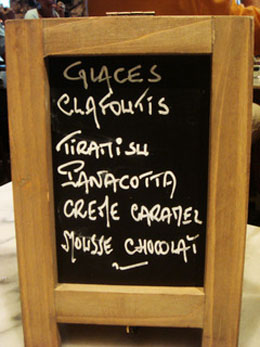 GLACES
CLAFOUTIS
TIRAMISU
PANACOTTA
CREME CARAMEL
MOUSSE CHOCOLAT